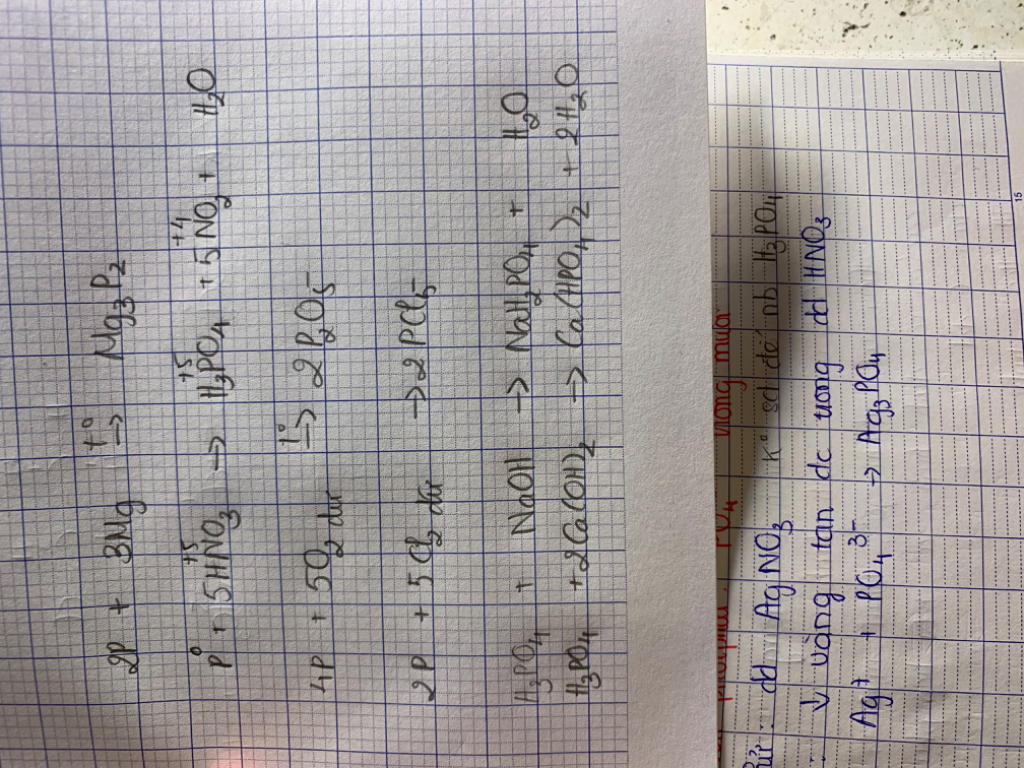 2P + 3Mg –t°→ Mg₃P₂
P⁰ + 5HN⁺⁵O₃ → H₃P⁺⁵O₄ + 5N⁺⁴O₂ + H₂O
4P + 5O₂ dư –t°→ 2P₂O₅
2P + 5Cl₂ dư → 2PCl₅
H₃PO₄ + NaOH → NaH₂PO₄ + H₂O
H₃PO₄ + 2Ca(OH)₂ → Ca(HPO₄)₂ + 2H₂O
PO₄ trong muối
dd AgNO₃ K° sd để nb H₃PO₄
↓ vàng tan đc trong dd HNO₃
Ag⁺ + PO₄³⁻ → Ag₃PO₄
15